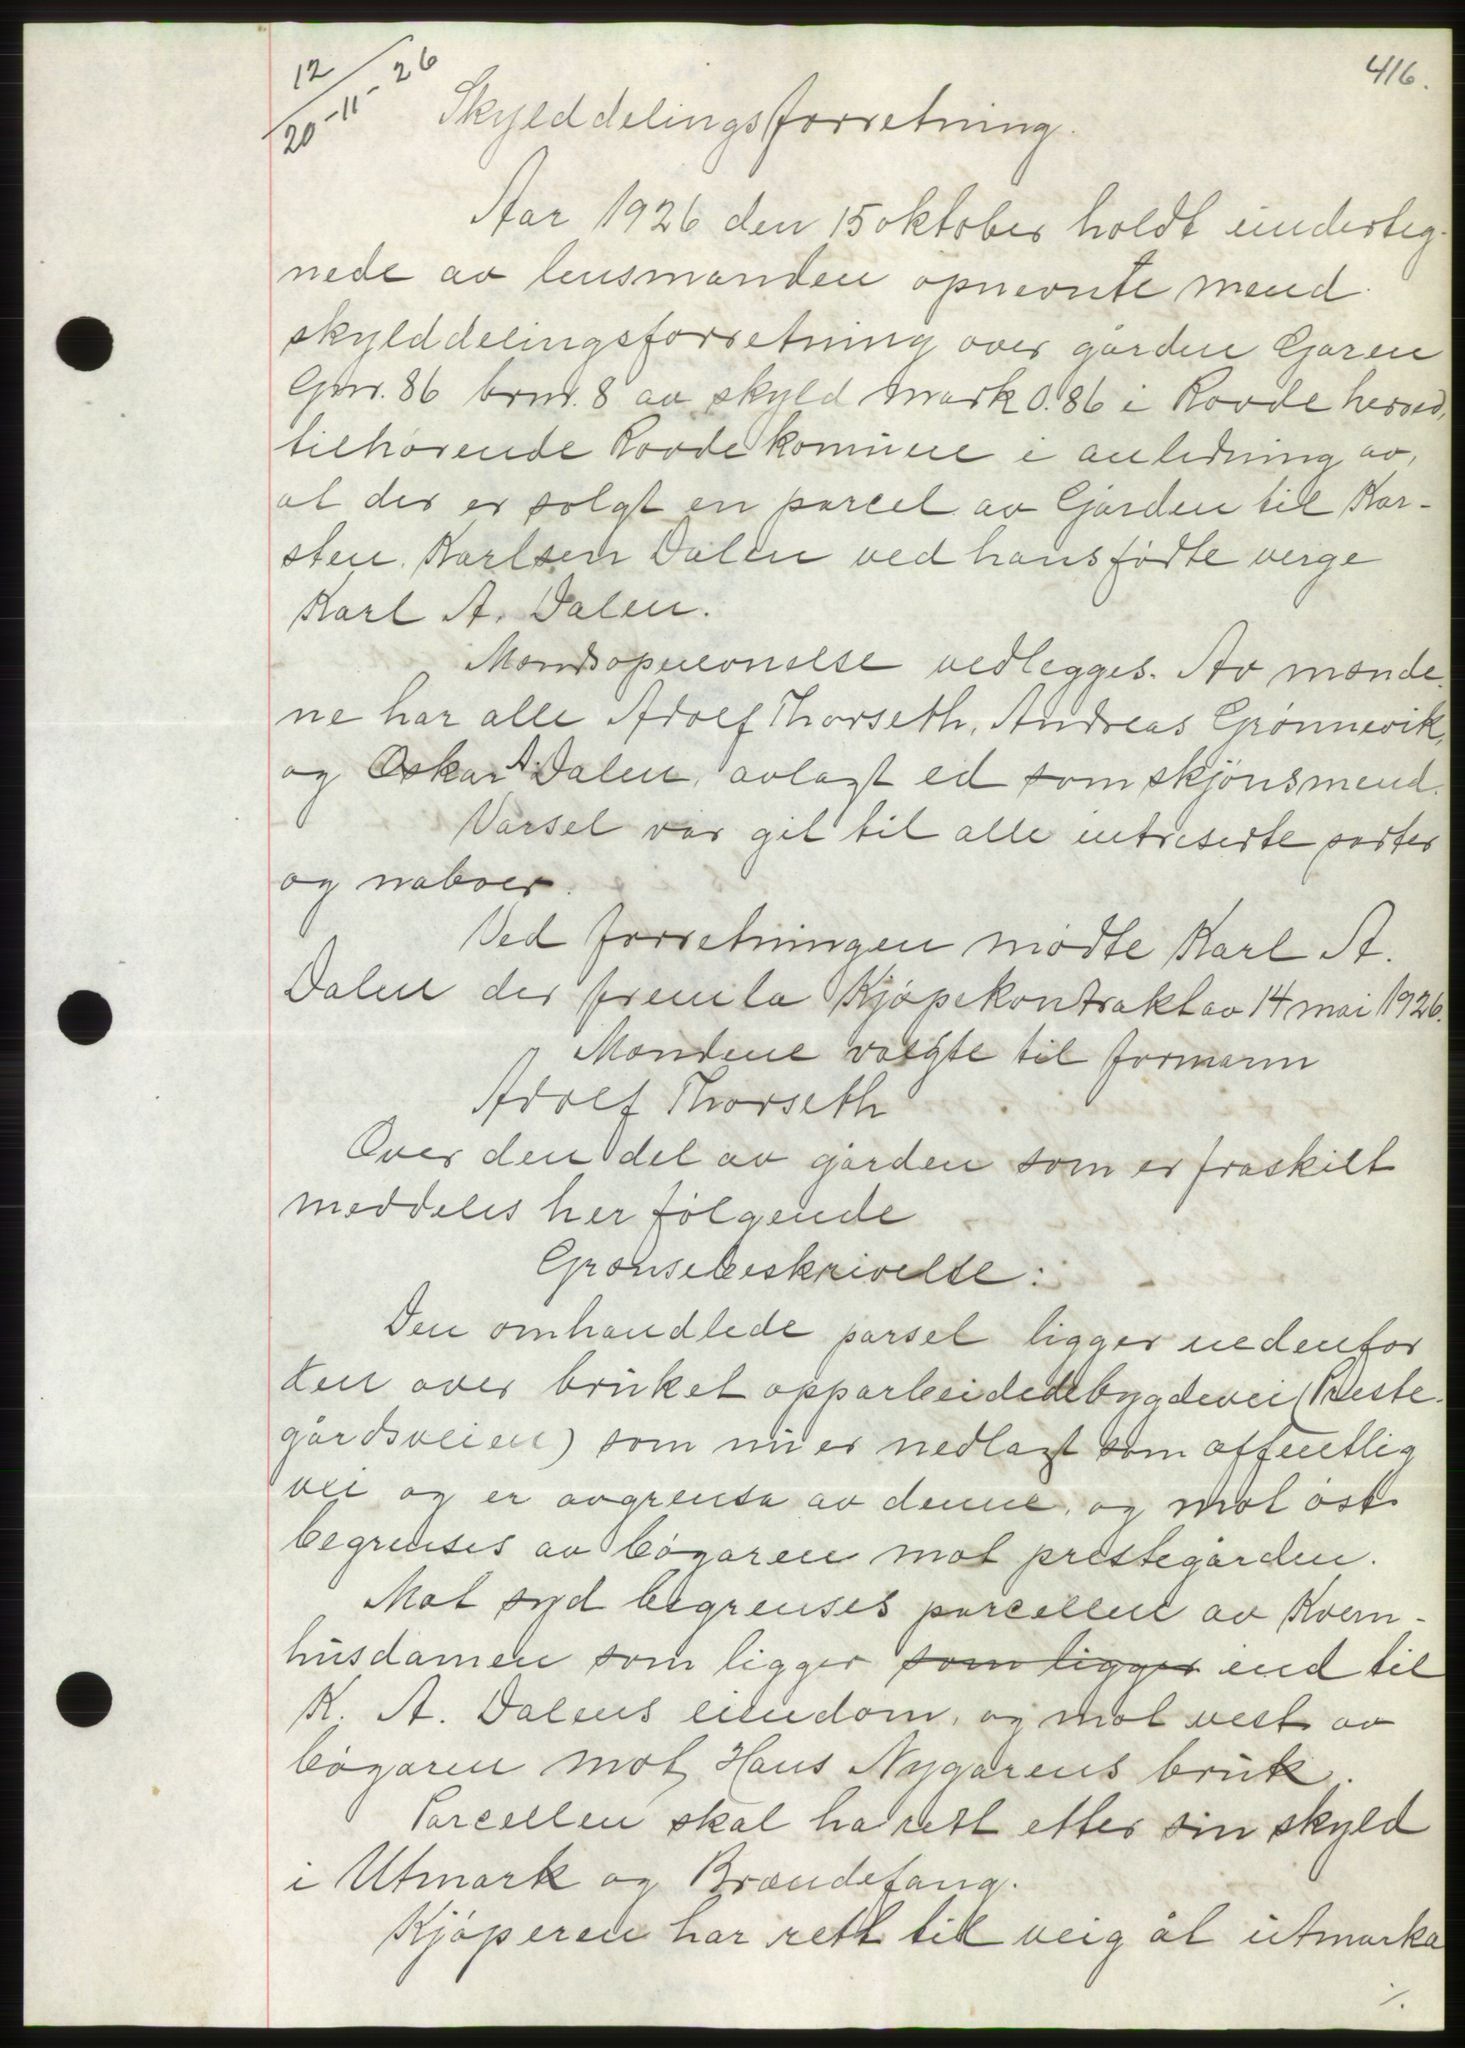 12
20-11-26
416.
Skylddelingsforretning.
Aar 1926 den 15 oktober holdt underteg-
nede av lensmanden opnevnte mend
skylddelingsforretning over gården Garen
Gnr. 86 brnr. 8 av skyld mark 0.86 i Rovde herred,
tilhørende Rovde komune i anledning av,
at der er solgt en parcel av Gården til Kar-
sten Karlsen Dalen ved hans fødte verge
Karl A. Dalen.
Mandsopnevnelse vedlegges. Av mænde-
ne har alle Adolf Thorseth, Andreas Grønnevik,
og Oskar A. Dalen, avlagt ed som skjønsmend.
Varsel var git til alle intreserte parter
og naboer.
Ved forretningen mødte Karl A.
Dalen der fremla Kjøpekontrakt av 14 mai 1926.
Mændene valgte til formann
Adolf Thorseth
Over den del av gården som er fraskilt
meddeles her følgende
Grænsebeskrivelse:
Den omhandlede parsel ligger nedenfor
den over bruket opparbeidede bygdevei (Preste-
gårdsveien) som nu er nedlagt som offentlig
vei og er avgrensa av denne, og mot øst
begrenses av bøgaren mot prestegården.
Mot syd begrenses parcellen av Kvern-
husdamen som ligger som ligger ind til
K. A. Dalens eiendom, og mot vest av
bøgaren mot Hans Nygarens bruk.
Parcellen skal ha rett etter sin skyld
i Utmark og Brændefang.
Kjøperen har rett til veig åt utmarka
./.